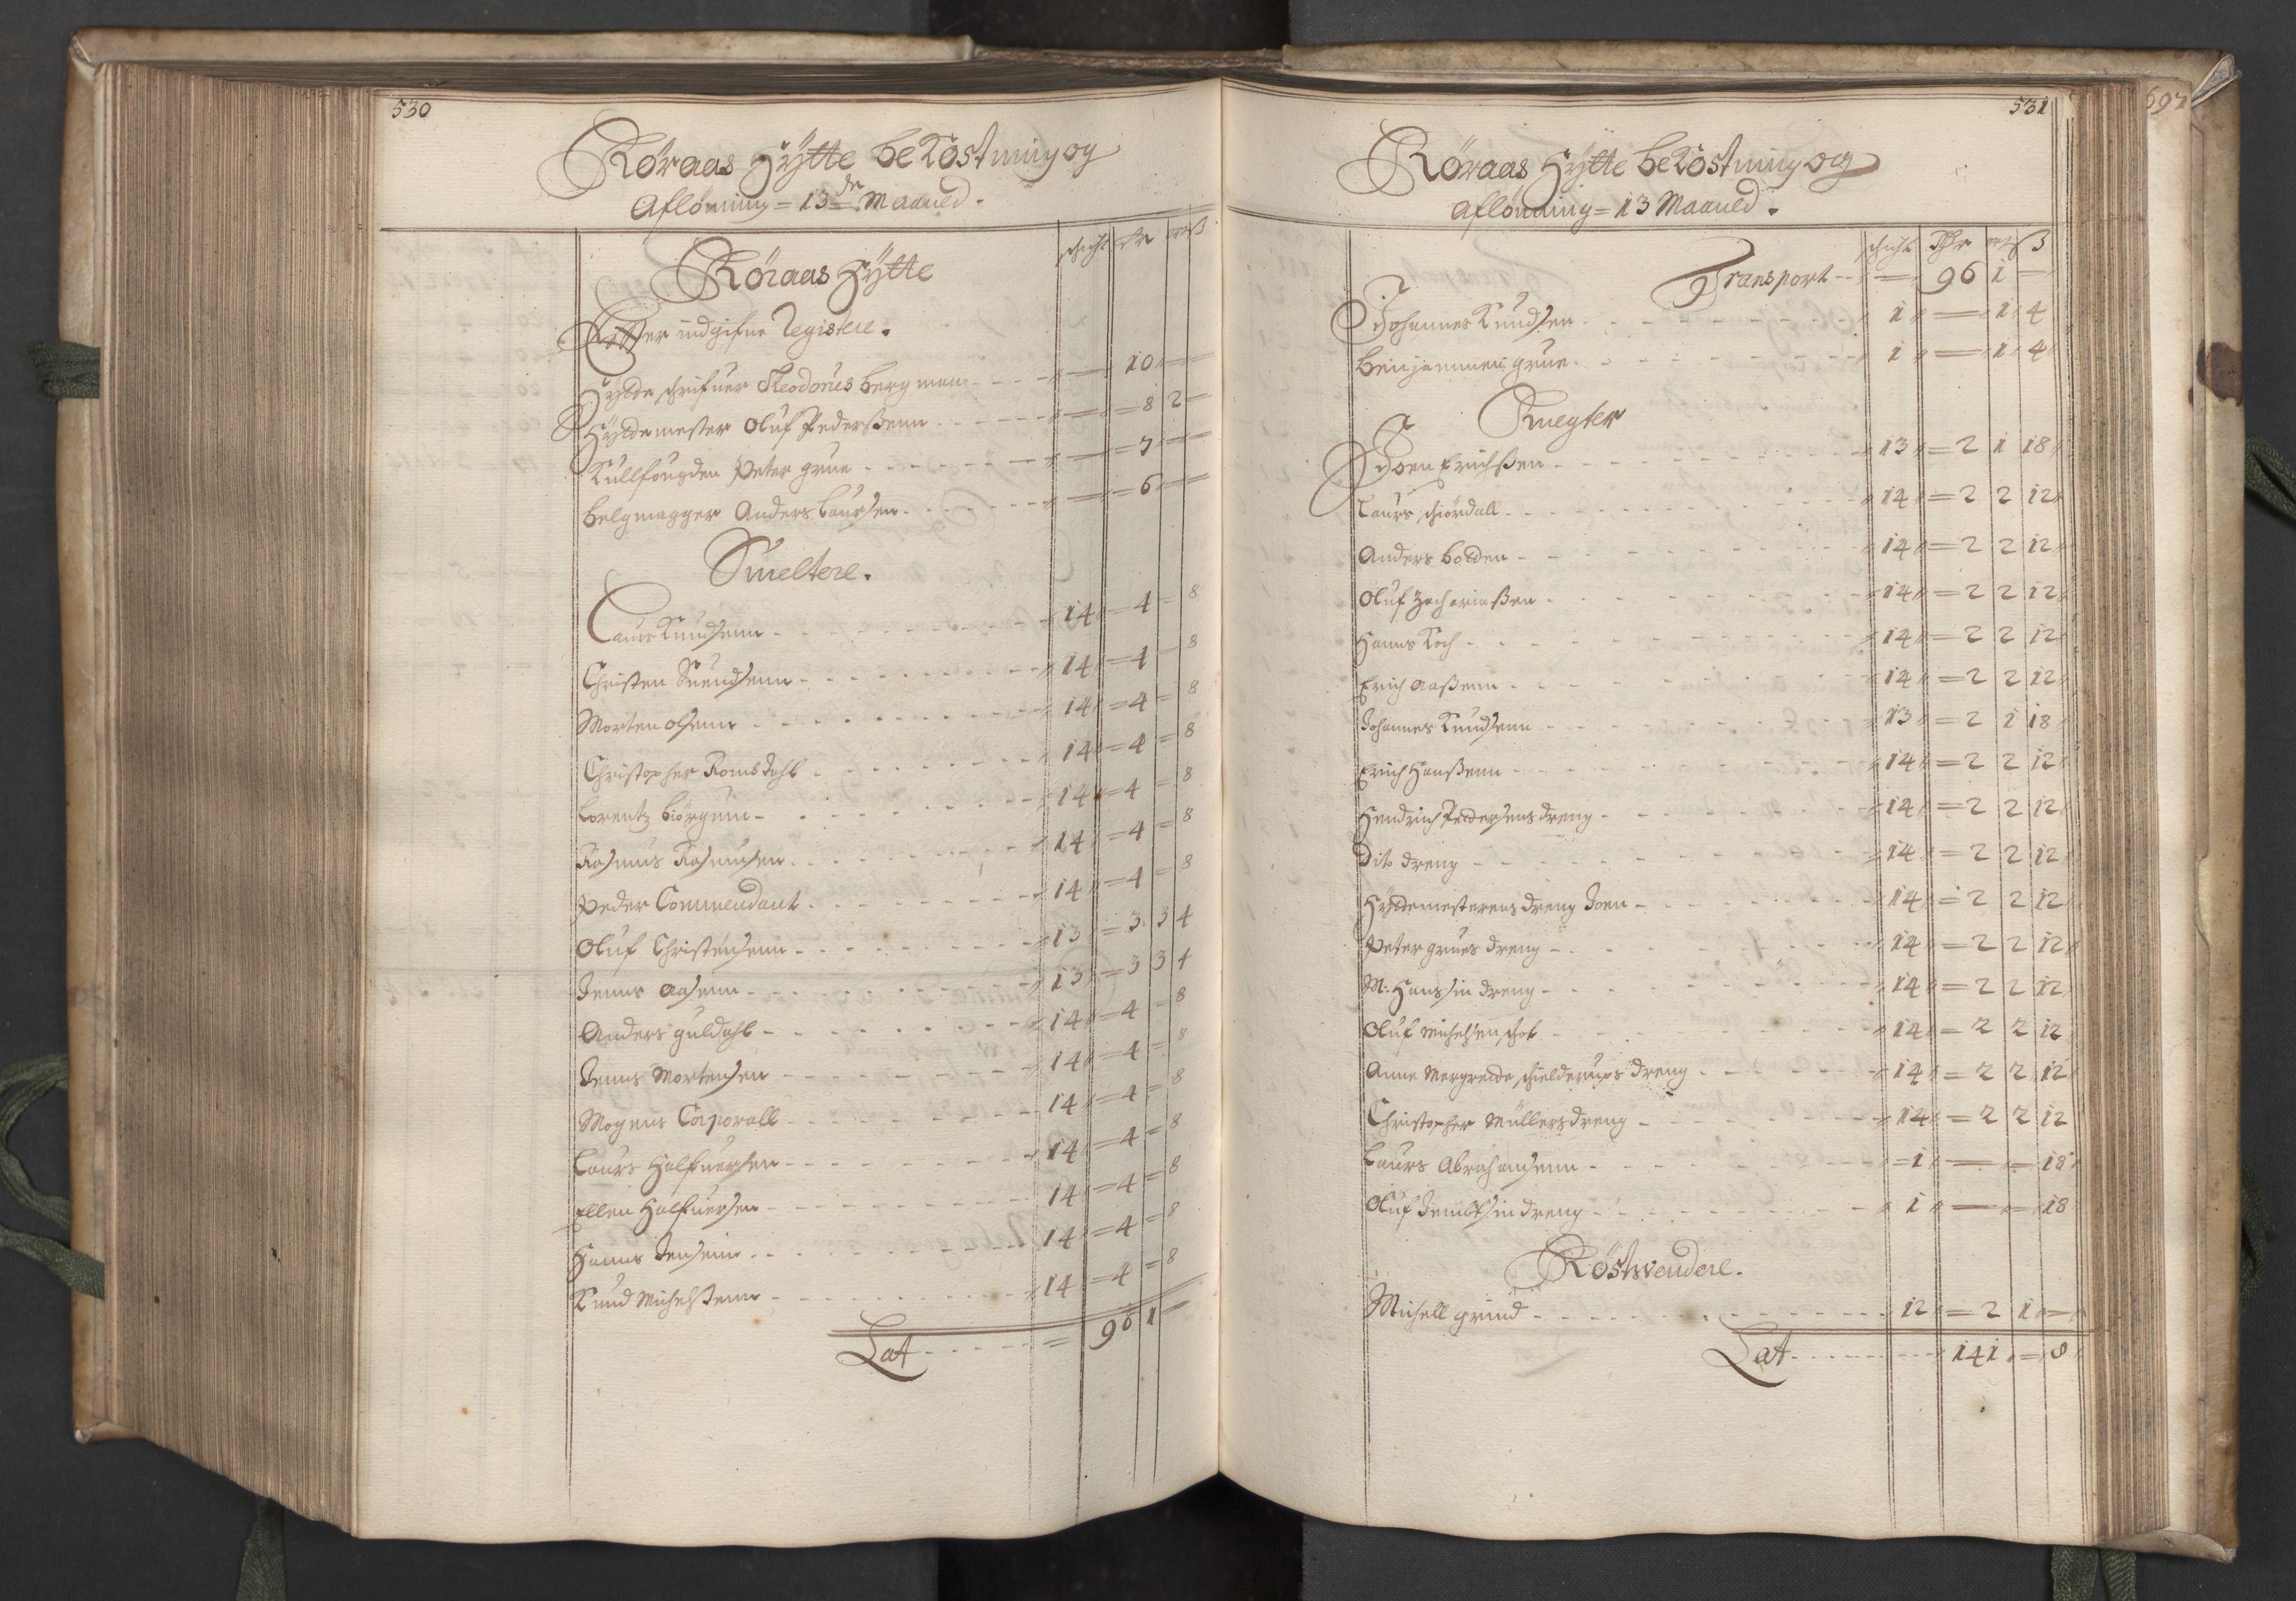 530
Røraas Hÿtte bekostning og
Aflønning = 13 de Maanед.
schicht dr ort ß
Røraas Hÿtte
Effter indgifne Registere.
Hÿtte schrifuer Theodorus bergman - - - - 10
Hÿttemester Oluf Pederßenn - - - - 8 2
Kullfougden Peter grue - - - - 7
belgmagger Anders Laursen - - - - 6
Smeltere.
Laurs Knudsenn - - - - 14 = 4 = 8
Christen Suendsenn - - - - 14 = 4 = 8
Morten olsenn - - - - 14 = 4 = 8
Christopher Romsdahl - - - - 14 = 4 = 8
Lorentz biörgum - - - - 14 = 4 = 8
Rasmus Rasmusen - - - - 14 = 4 = 8
Peder Commendant - - - - 14 = 4 = 8
Oluf Christensenn - - - - 13 = 3 3 4
Jenns Aasenn - - - - 13 = 3 3 4
Anders guldahl - - - - 14 = 4 = 8
Jenns Mortensen - - - - 14 = 4 = 8
Mogens Caporall - - - - 14 = 4 = 8
Laurs Halfuersen - - - - 14 = 4 = 8
Ellen Halfuersen - - - - 14 = 4 = 8
Hanns Jensenn - - - - 14 = 4 = 8
Knud Michelßenn - - - - 14 = 4 = 8
Lat - - - - = 96 1
531
Røraas Hÿtte bekostning og
Aflønning = 13 Maaned.
schicht Dhr ort ß
Transport - - = 96 1 =
Johannes Knudsen - - - - 1 = 1 4
benjammen grue - - - - 1 = 1 4
Knegter
Joen Erichßen - - - - 13 = 2 1 18
Laurs schiördall - - - - 14 = 2 2 12
Anders bolden - - - - 14 = 2 2 12
Oluf Zachariaßen - - - - 14 = 2 2 12
Hanns Koch - - - - 14 = 2 2 12
Erich Aaßenn - - - - 14 = 2 2 12
Johannes Knudsenn - - - - 13 = 2 1 18
Erich Hanßenn - - - - 14 = 2 2 12
Hendrich Pedersens dreng - - - - 14 = 2 2 12
Dito dreng - - - - 14 = 2 2 12
Hÿttemesterens dreng Joen - - - - 14 = 2 2 12
Peter grues dreng - - - - 14 = 2 2 12
M: Hans sin dreng - - - - 14 = 2 2 12
Oluf Michelsen - - - - 14 = 2 2 12
Anne Margrette schielderups dreng - - - - 14 = 2 2 12
Christopher Müllers dreng - - - - 14 = 2 2 12
Laurs Abrahamsenn - - - - 1 = = 18
Oluf sin dreng - - - - 1 = = 18
Röstwendere.
Michell grind - - - - 12 = 2 1 =
Lat - - - - 141 = 8
697